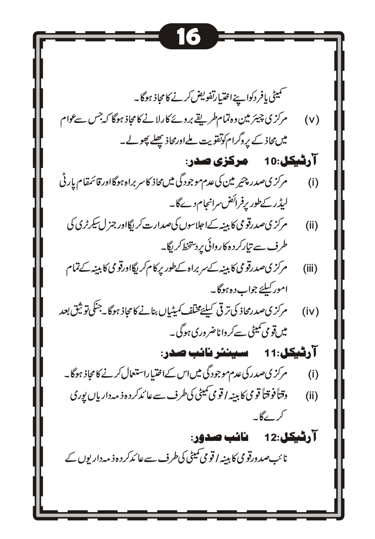 16
کمیٹی یا فرد کو اپنے اختیار تفویض کرنے کا مجاز ہوگا۔
(v) مرکزی چیئرمین وہ تمام طریقے بروئے کار لانے کا مجاز ہوگا کہ جس سے عوام
میں محاذ کے پروگرام کو تقویت ملے اور محاذ پھلے پھولے۔
آرٹیکل:10 مرکزی صدر:
(i) مرکزی صدر چیئرمین کی عدم موجودگی میں محاذ کا سربراہ ہوگا اور قائمقام پارٹی
لیڈر کے طور پر فرائض سرانجام دے گا۔
(ii) مرکزی صدر قومی کابینہ کے اجلاسوں کی صدارت کریگا اور جنرل سیکرٹری کی
طرف سے تیار کردہ کاروائی پر دستخط کریگا۔
(iii) مرکزی صدر قومی کابینہ کے سربراہ کے طور پر کام کریگا اور قومی کابینہ کے تمام
امور کیلئے جواب دہ ہوگا۔
(iv) مرکزی صدر محاذ کی ترقی کیلئے مختلف کمیٹیاں بنانے کا مجاز ہوگا۔ جنکی توثیق بعد
میں قومی کمیٹی سے کروانا ضروری ہوگی۔
آرٹیکل:11 سینئر نائب صدر:
(i) مرکزی صدر کی عدم موجودگی میں اس کے اختیار استعمال کرنے کا مجاز ہوگا۔
(ii) وقتاً فوقتاً قومی کابینہ / قومی کمیٹی کی طرف سے عائد کردہ ذمہ داریاں پوری
کرے گا۔
آرٹیکل:12 نائب صدور:
نائب صدور قومی کابینہ / قومی کمیٹی کی طرف سے عائد کردہ ذمہ داریوں کے